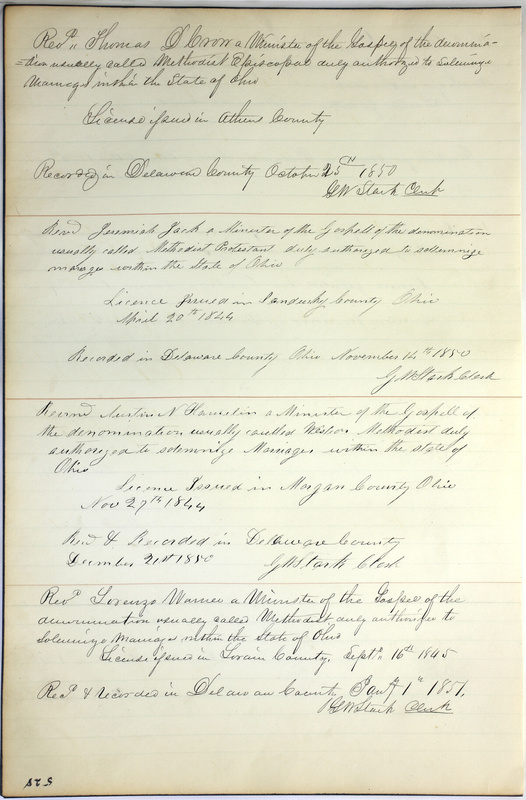 Revd. Thomas D Crow a Minister of the Gospel of the denomina-
=tion usually called Methodist Episcopal duly authorized to Solemnize
Marriages within the State of Ohio
License issued in Athens County
Recorded in Delaware County October 25th 1850
GW Stark Clerk
Revd Jeremiah Jack a Minister of the Gospell of the denomination
usually called Methodist Protestant duly authorized to solemnize
marriages within the State of Ohio
Licence Issued in Sandusky County Ohio
April 20th 1844
Recorded in Delaware County Ohio November 14th 1850
G W Stark Clerk
Austin N Hamelin a Minister of the Gospell of
the denomination usually caulled Methodist duly
authorized to solemnize Marriages within the state of
Ohio
Licence Issued in Morgan County Ohio
Nov 27th 1844
Recd & Recorded in Delaware County
December 21st 1850 GW Stark Clerk
Revd Lorenzo Warner a Minister of the Gospel of the
denomination usually called Methodist duly authorized to
Solemnize Marriages within the State of Ohio
License issued in Lorain County, Septr. 16th 1845
Recd & recorded in Delaware County Jany 1st 1851.
GW Stark Clerk
528